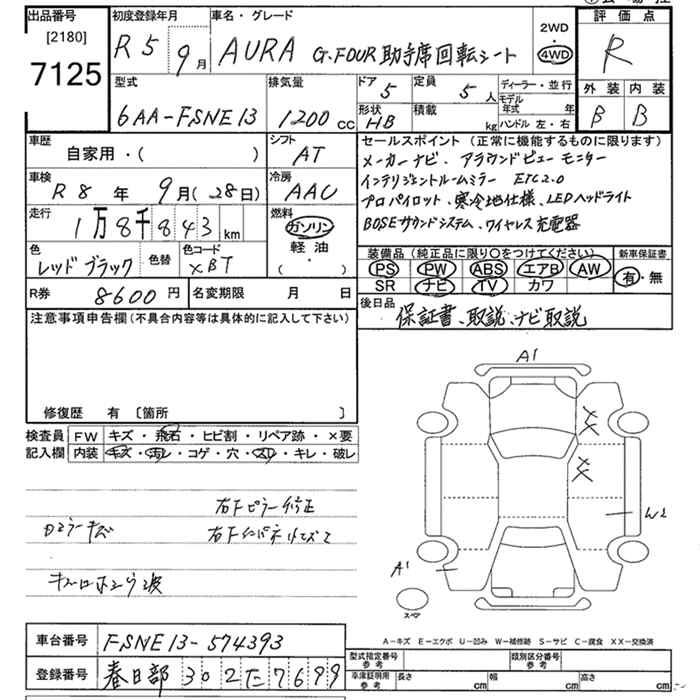 出品番号 初度登録年月 車名・グレード 2WD ・ 4WD 評価点
[2180]
7125
R5 9月 AURA G.FOUR助手席回転シート R
型式 排気量 ドア 定員 ディーラー・並行 外装 内装
6AA-FSNE13 1200cc 5 5人 モデル年式 年 B B
形状 HB 積載 kg ハンドル 左・右
車歴 シフト セールスポイント(正常に機能するものに限ります)
自家用・( ) AT メーカーナビ、アラウンドビューモニター
車検 冷房 インテリジェントルームミラー ETC2.0
R8年 9月(28日) AAC プロパイロット、寒冷地仕様、LEDヘッドライト
走行 燃料 BOSEサウンドシステム、ワイヤレス充電器
1万8千843km ガソリン
軽油
( ・ )
色 色替 色コード 装備品(純正品に限り○をつけてください) 新車保証書
レッドブラック XBT PS PW ABS エアB AW 有・無
SR ナビ TV カワ
R券 8600円 名変期限 月 日 後日品
保証書、取説、ナビ取説
注意事項申告欄(不具合内容等は具体的に記入して下さい)
修復歴 有 〔箇所 〕
検査員 FW キズ・飛石・ヒビ割・リペア跡・×要
記入欄 内装 キズ・汚レ・コゲ・穴・スレ・キレ・破レ
A1
XX
XX
W2
A1
スペア
右Fピラー修正
Dミラーキズ
A-キズ E-エクボ U-凹み W-補修跡 S-サビ C-腐食 XX-交換済
車台番号 FSNE13-574393
型式指定番号 参考 類別区分番号 参考
登録番号 春日部302た7699
車庫証明用 参考 長さ cm 幅 cm 高さ cm